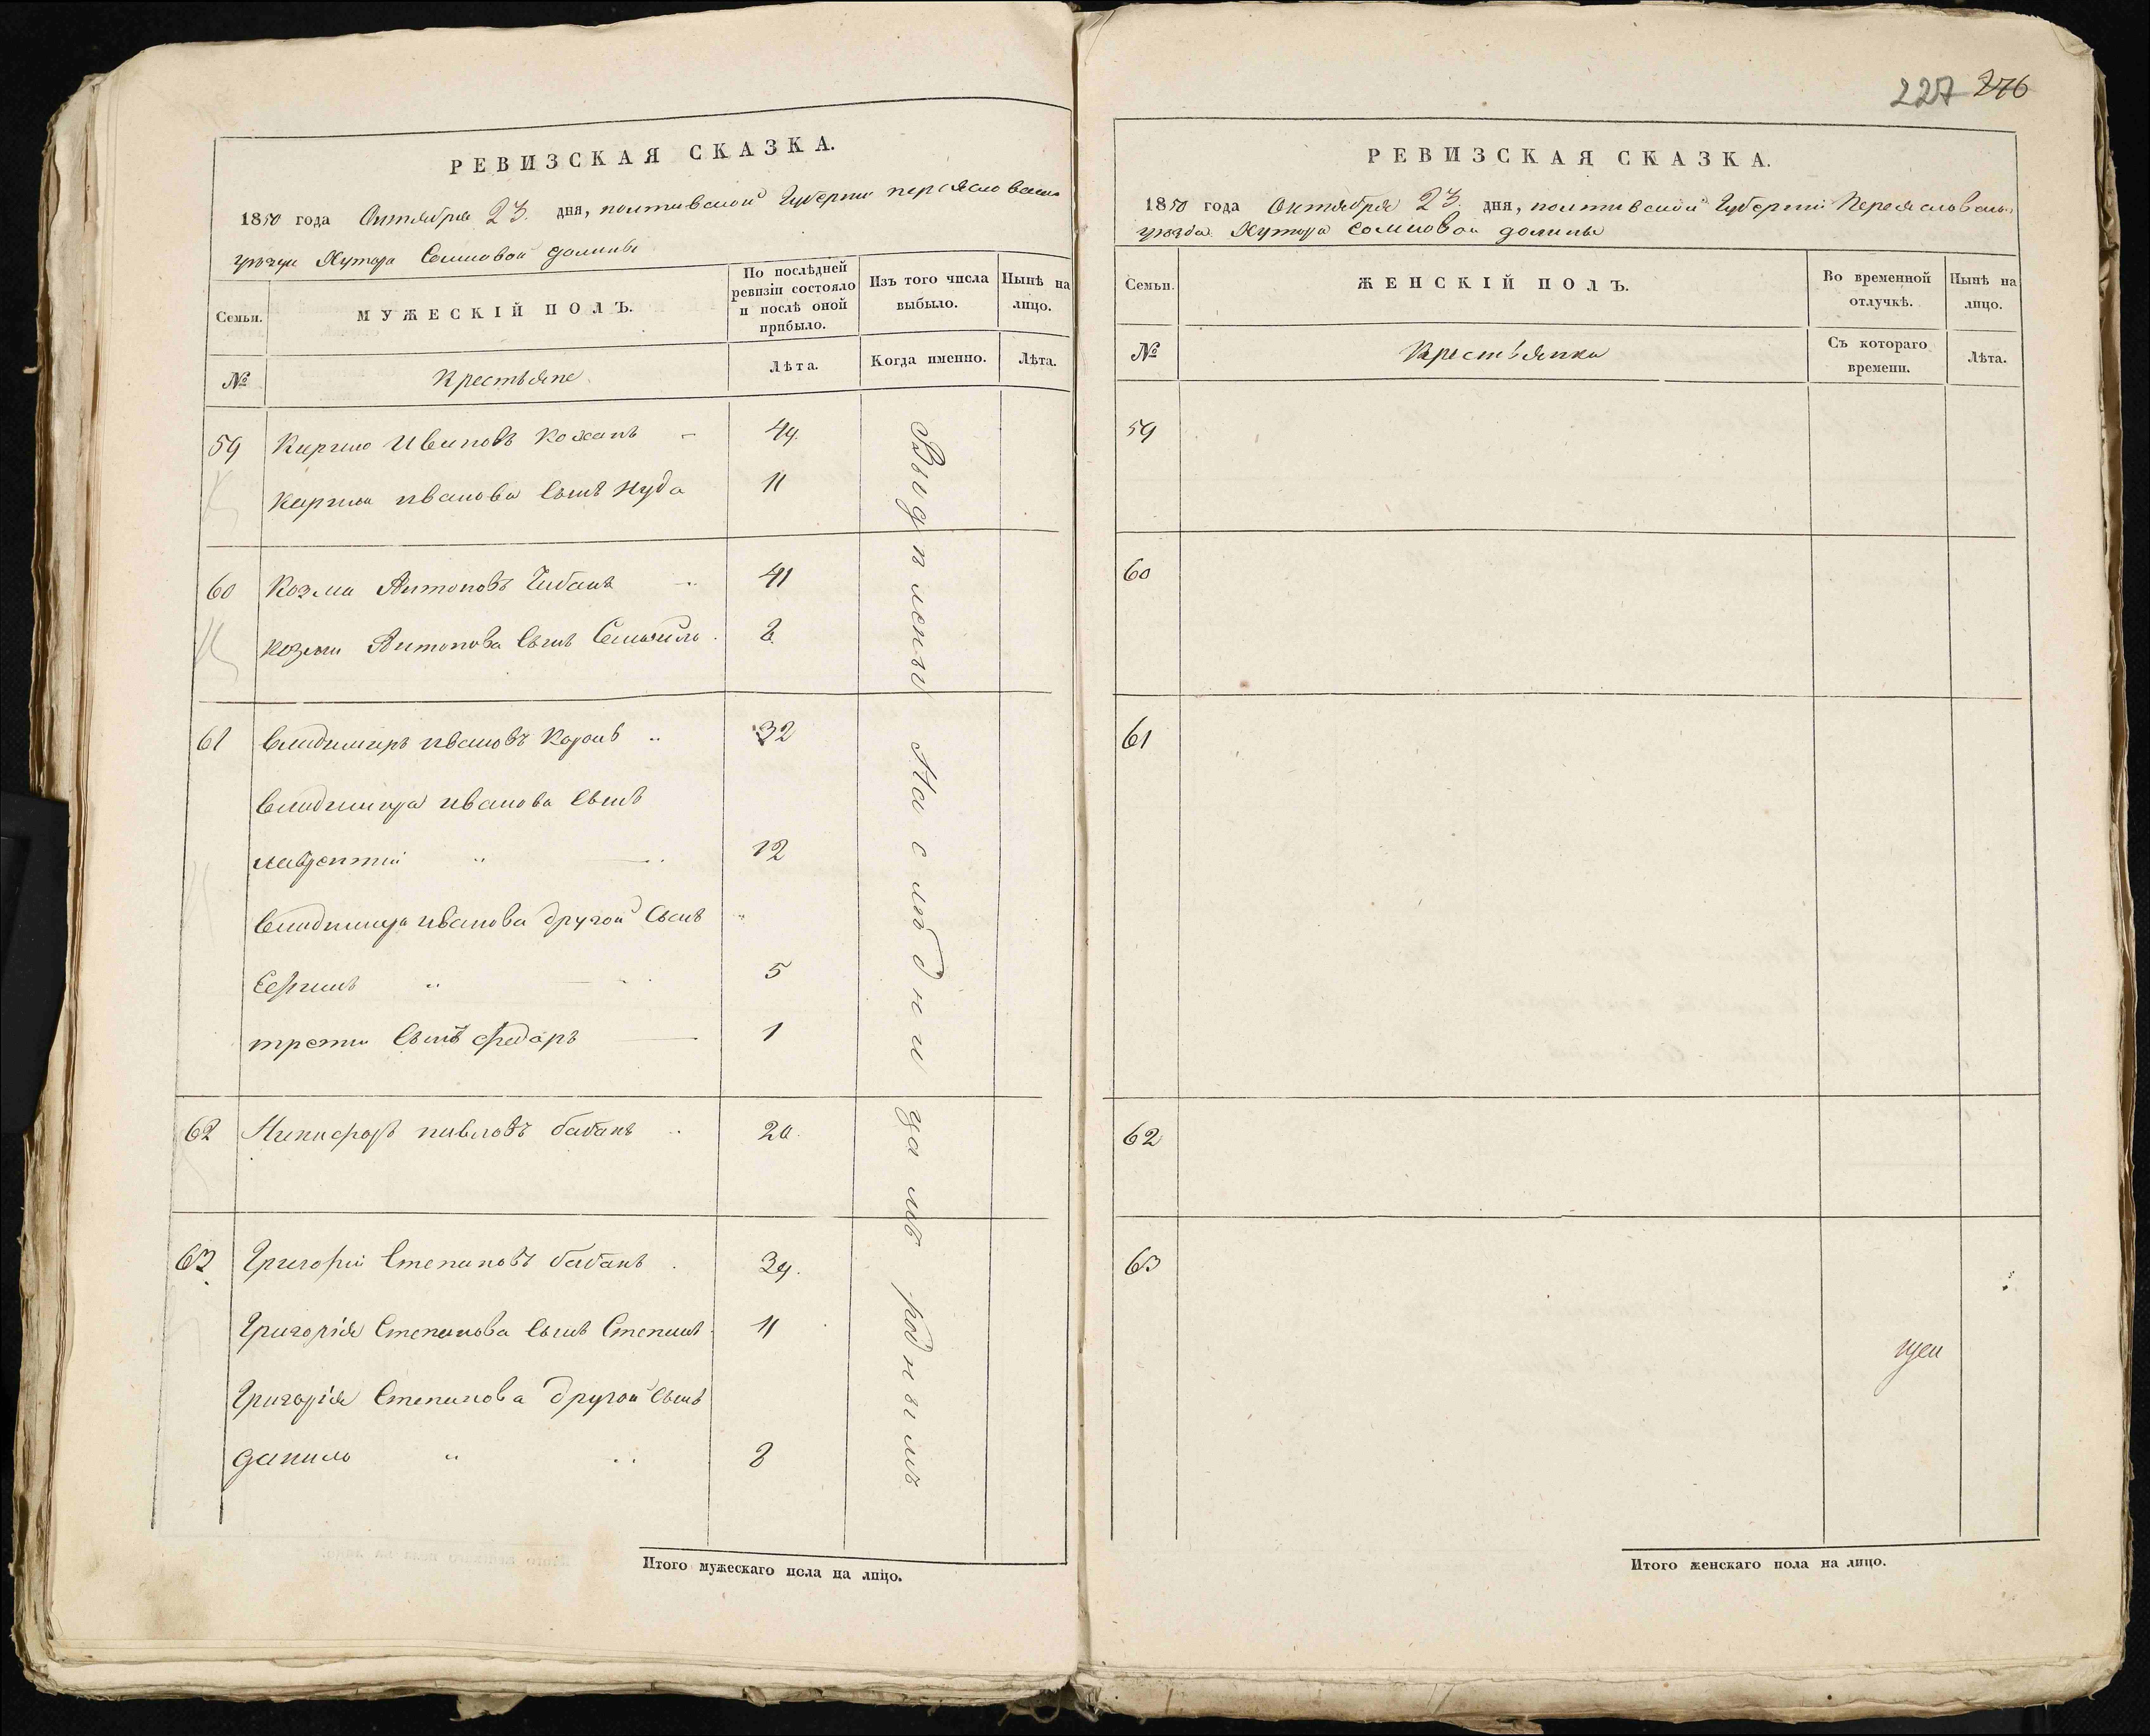 РЕВИЗСКАЯ СКАЗКА.
1850 года Октября 23. дня, полтавской Губернии переяславскаго
уезда Хутора Сомковой долины
Семьи.
МУЖЕСКІЙ ПОЛЪ.
По послѣдней ревизіи состояло и послѣ оной прибыло.
Изъ того числа выбыло.
Нынѣ на лицо.
№
Крестьяне
Лѣта.
Когда именно.
Лѣта.
59 Кирило Ивановъ 49.
Кирила иванова сынъ 11
60 Козма Антоновъ 41
Козми Антонова Сынъ 8
61 Владимиръ ивановъ 32
Владимира иванова Сынъ
лаврентий 12
Владимира иванова другой Сынъ
5
трети Сынъ Федоръ 1
62 Никифоръ павловъ бабакъ 20.
63 Григорий Степановъ бабакъ 39.
Григорія Степанова Сынъ Степанъ 11
Григорія Степанова другой Сынъ
данило 8
Выдѣлены Наслѣдницамъ роднымъ
Итого мужескаго пола на лицо.
227 276
РЕВИЗСКАЯ СКАЗКА.
1850 года Октября 23. дня, полтавской Губернии Переяславскаго
уезда Хутора Сомковой долины
Семьи.
ЖЕНСКІЙ ПОЛЪ.
Во временной отлучкѣ.
Нынѣ на лицо.
№
Крестьянки
Съ котораго времени.
Лѣта.
59
60
61
62
63
Итого женскаго пола на лицо.